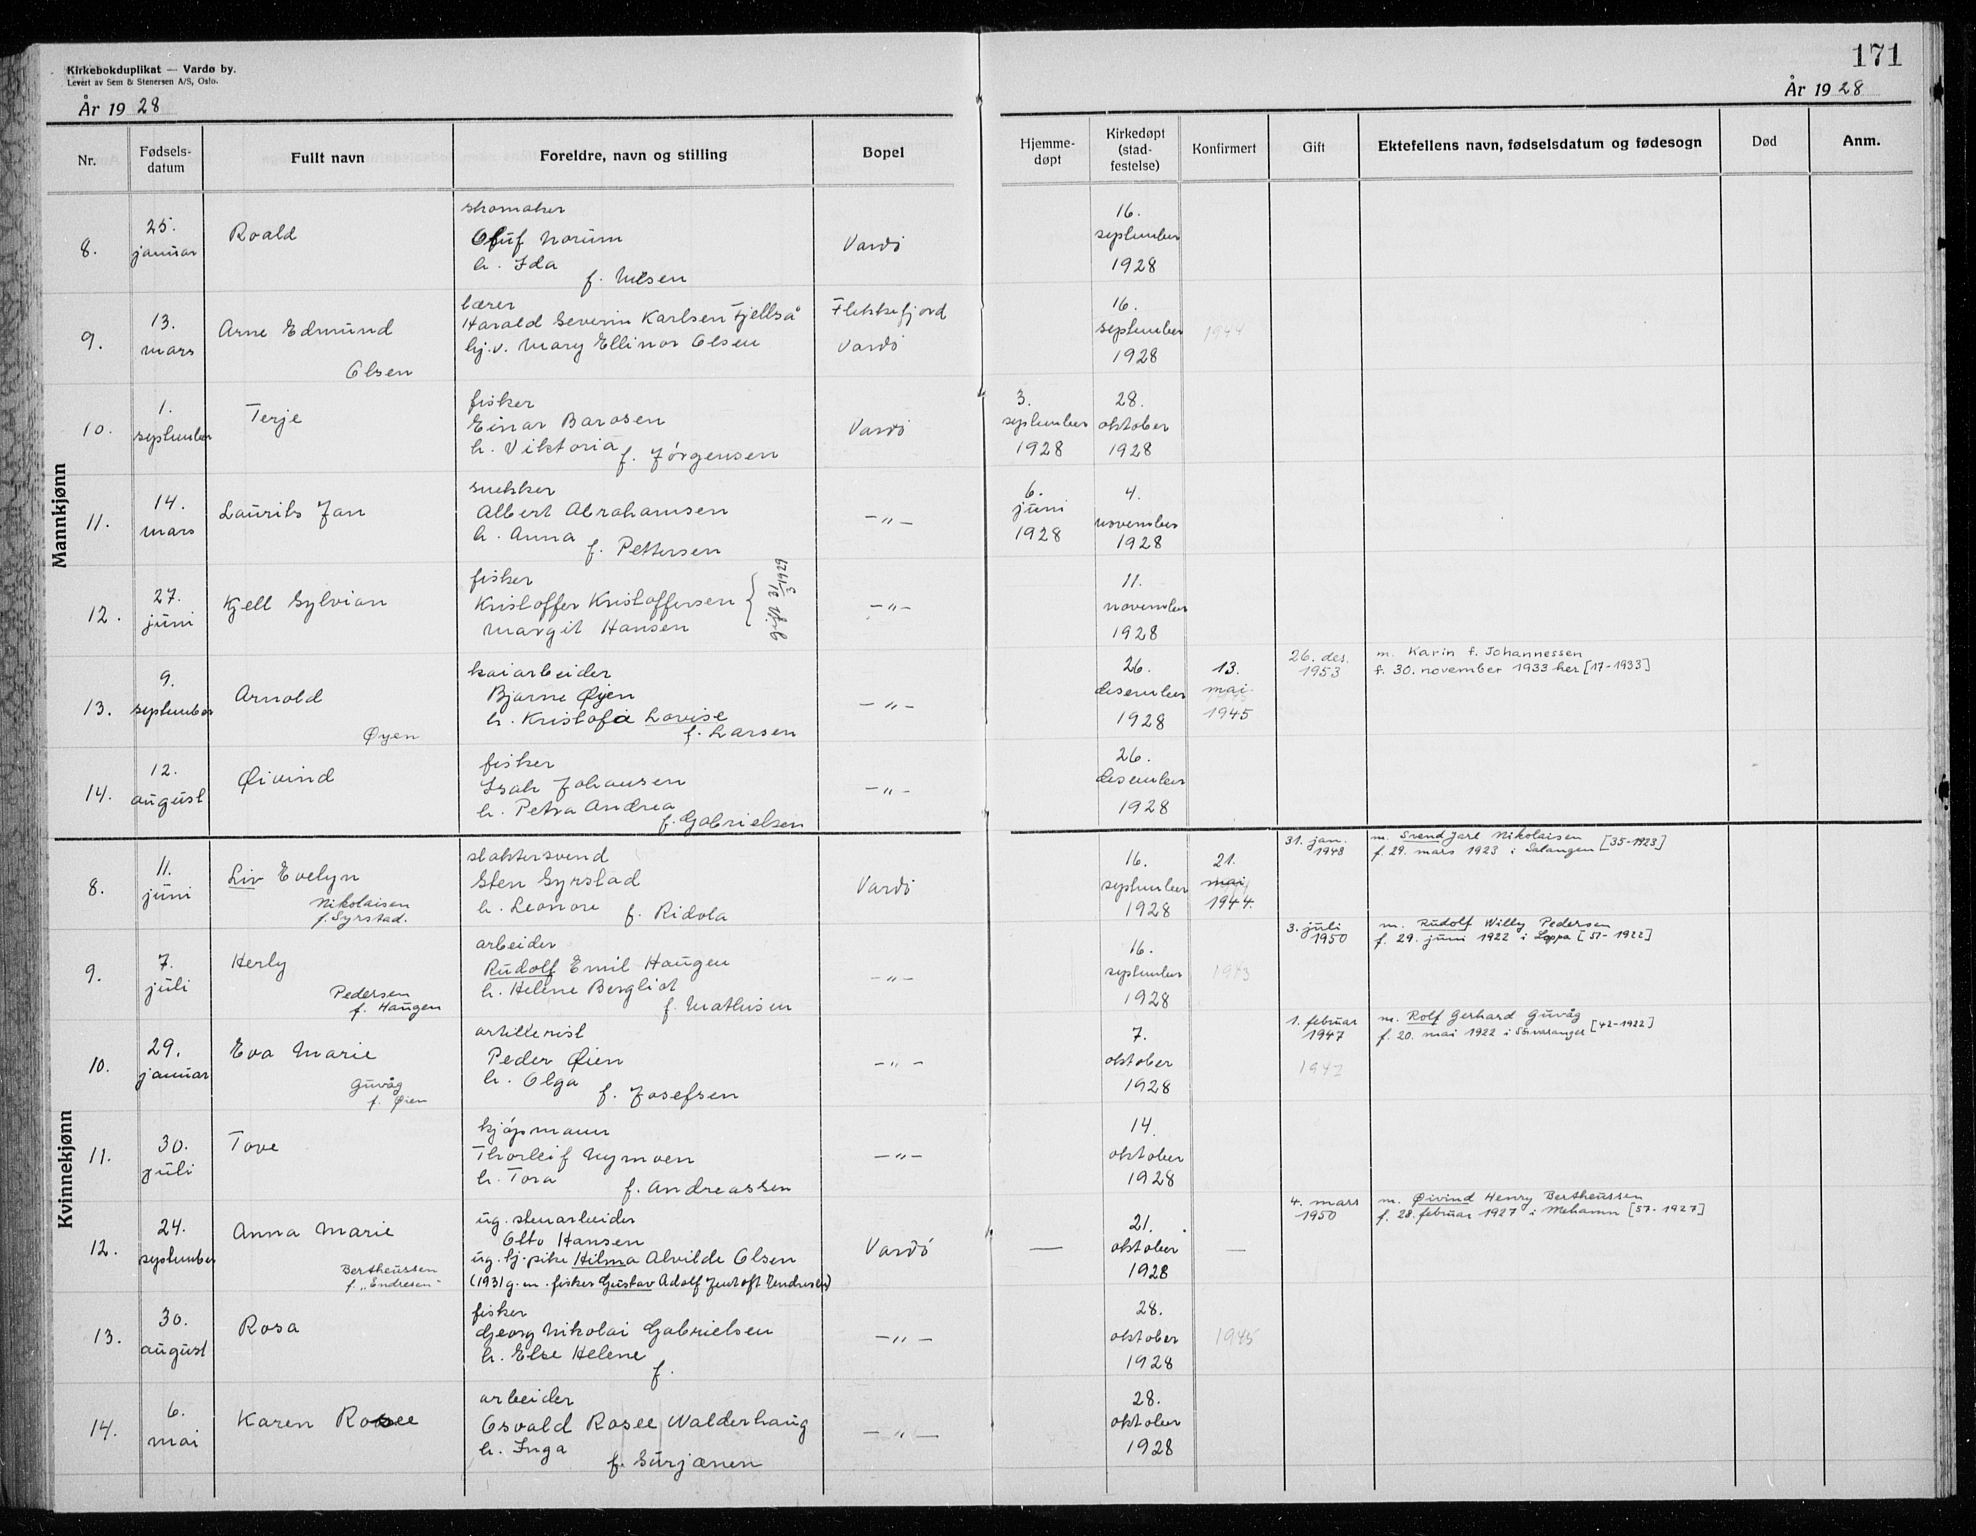 Kirkebokduplikat — Vardø by.
Levert av Sem & Stenersen A/S, Oslo.
171
År 1928
År 1928
Nr. Fødsels-datum Fullt navn Foreldre, navn og stilling Bopel Hjemme-døpt Kirkedøpt (stad-festelse) Konfirmert Gift Ektefellens navn, fødselsdatum og fødesogn Død Anm.
Mannkjønn
skomaker 16.
25. Roald Oluf Norum Vardö september
8. januar h. Ida 1928
f. Nilsen
lærer Flekkefjord 16.
13. Arne Edmund Harald Severin Karlsen Fjellså september 1944
9. mars hj.v. Mary Ellinor Olsen Vardö 1928
Olsen
1. fisker 3. 28.
Terje Einar Barosen september oktober
10. september h. Viktoria Vardö 1928 1928
f. Jörgensen
snekker 6. 4.
14. Laurits Jan Albert Abrahamsen juni november
11. mars h. Anna — " — 1928 1928
f. Pettersen
fisker 11.
27. Kjell Sylvian Kristoffer Kristoffersen gift 31/3 1929 — " — november
12. juni Margit Hansen 1928
9. kaiarbeider 26. 13. 26. des. m. Karin f. Johannessen
Arnold Bjarne Øyen desember mai 1953 f. 30. november 1933 her [17-1933]
13. september h. Kristofa Lovise — " — 1928 1945
Øyen f. Larsen
12. fisker 26.
Øivind Isak Johansen desember
14. august h. Petra Andrea — " — 1928
f. Gabrielsen
Kvinnekjønn
slaktersvend 16. 21. 31. jan. m. Svend Jarl Nikolaisen
11. Liv Evelyn Sten Syrstad Vardö september mai 1948 f. 29. mars 1923 i Salangen [35-1923]
8. juni Nikolaisen h. Leonore 1928 1944.
f. Syrstad. f. Ridola
arbeider 16. 3. juli m. Rudolf Willy Pedersen
7. Herly Rudolf Emil Haugen september 1943 1950 f. 29. juni 1922 i Loppa [51-1922]
9. juli Pedersen h. Helene Bergliot — " — 1928
f. Haugen f. Mathisen
artillerist 7. 1. februar m. Rolf Gerhard Guvåg
29. Eva Marie Peder Øien oktober 1947 f. 20. mai 1922 i Sörvaranger [42-1922]
10. januar Guvåg h. Olga — " — 1928 1947
f. Øien f. Josefsen
kjöpmann 14.
30. Tove Thorleif Nymoen oktober
11. juli h. Tora — " — 1928
f. Andreassen
24. ug. stenarbeider 21. 4. mars m. Øivind Henry Bertheussen
Anna Marie Otto Hansen Vardö — oktober — 1950 f. 28. februar 1927 i Mehamn [57-1927]
12. september ug. hj. pike Hilma Alvilde Olsen 1928
Bertheussen (1931 g.m. fisker Gustav Adolf Jentoft Endresen)
f. „Endresen"
30. fisker 28.
Rosa Georg Nikolai Gabrielsen oktober 1945
13. august h. Else Helene — " — 1928
f.
arbeider 28.
6. Karen Rosee Osvald Rosee Walderhaug oktober
14. mai h. Inga — " — 1928
f. Surjænen